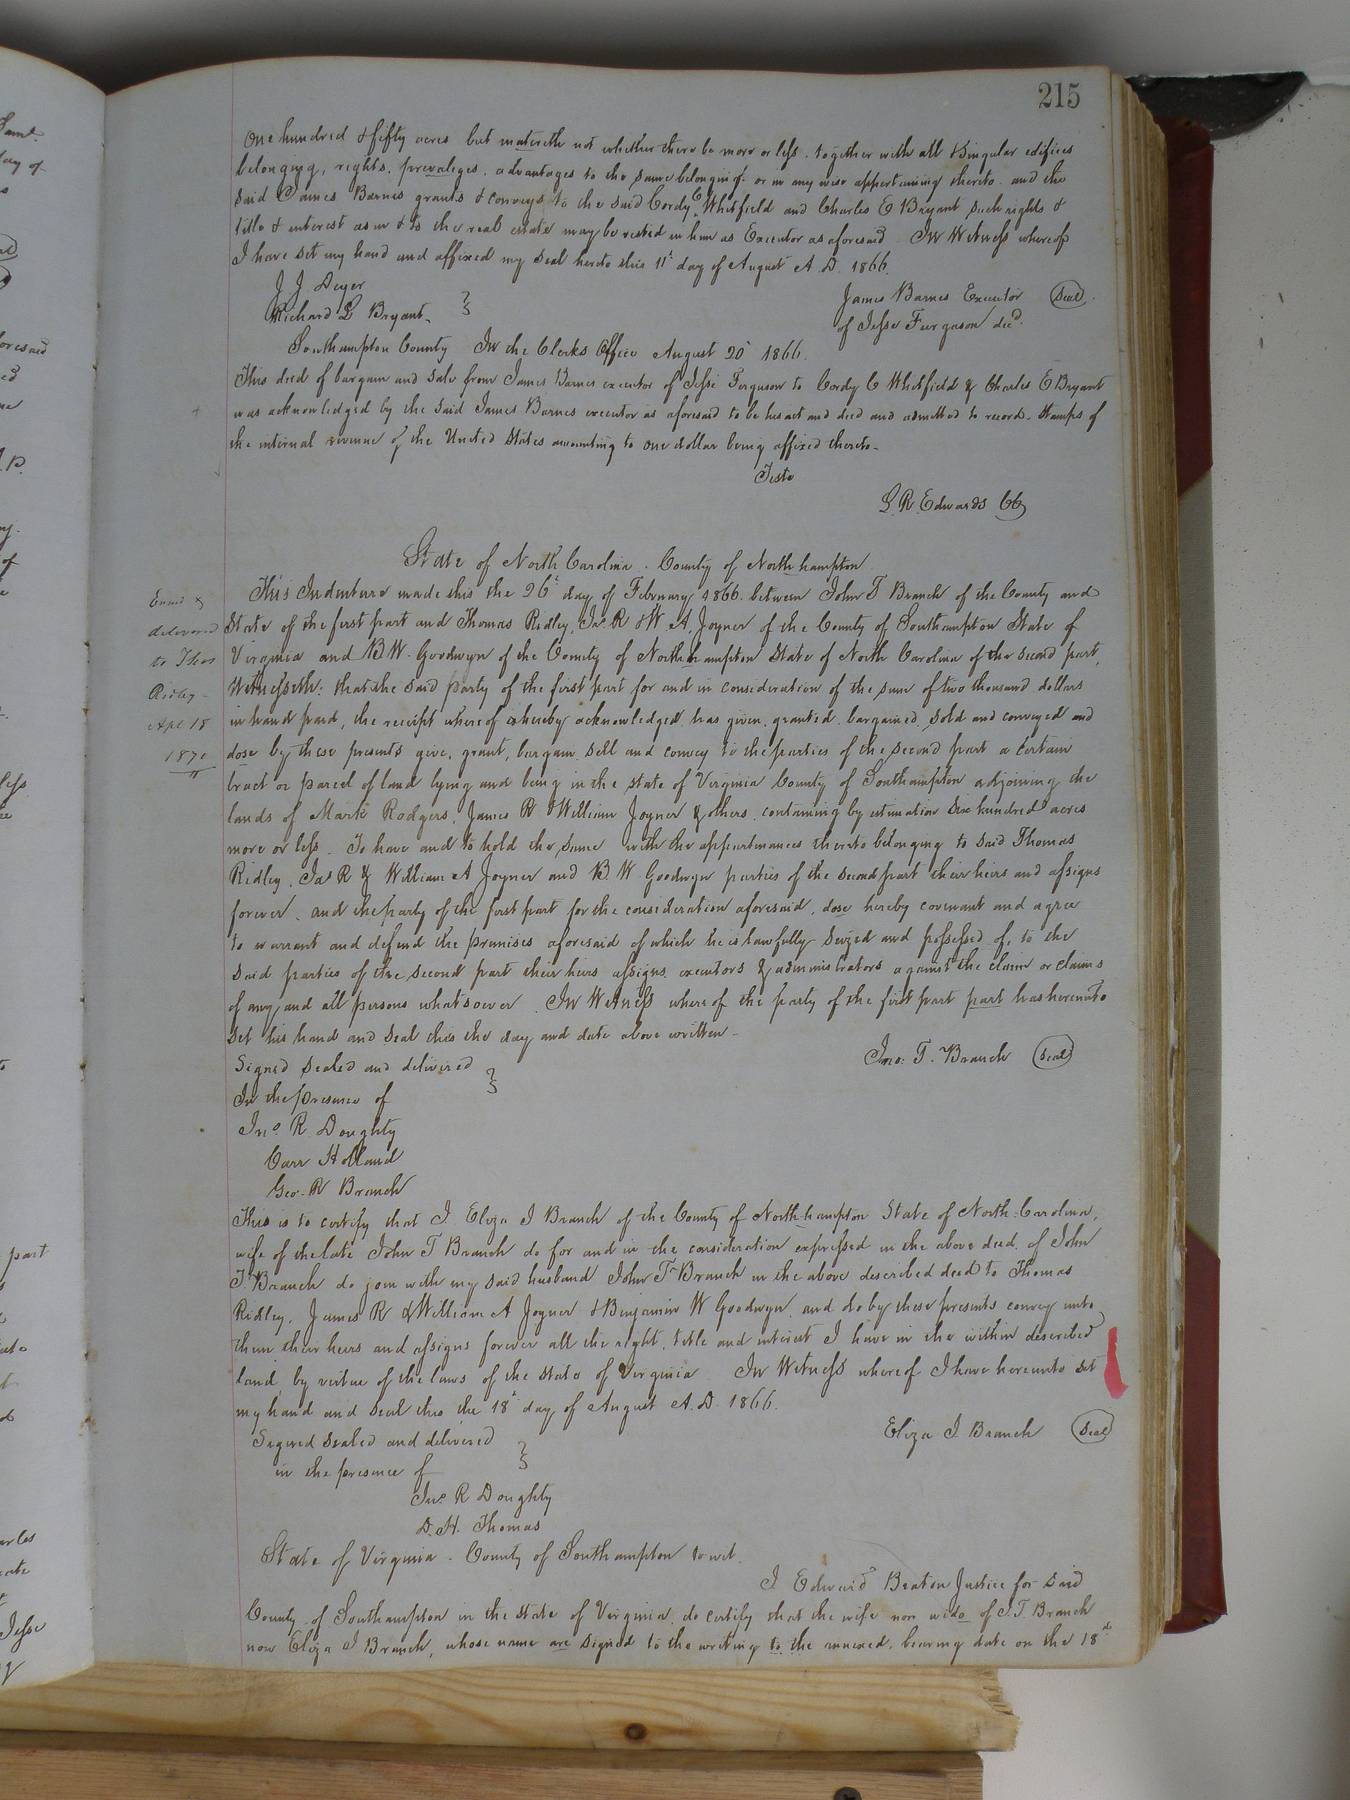 215
One hundred & fifty acres but matereth not whether there be more or less. together with all & singular edifices
belonging, rights, prevaliges, advantages to the same belonging or in any wise appertaining thereto. and the
said James Barnes grants & conveys to the said Cordy C Whitfield and Charles E Bryant such rights &
title & interest as in & to the real estate may be vested in him as Executor as aforesaid In Witness whereof
I have set my hand and affixed my seal hereto this 11t day of August A.D. 1866.
J J Deyer
James Barnes Executor Seal
Richard L Bryant
of Jesse Furgason decd.
Southampton County In the Clerks Office August 20t 1866.
This deed of bargain and sale from James Barnes executor of Jesse Ferguson to Cordy C Whitfield & Charles E Bryant
was acknowledged by the said James Barnes executor as aforesaid to be his act and deed and admitted to record. Stamps of
the internal revenue of the United States amounting to one dollar being affixed thereto.
Teste
L. R. Edwards CC
State of North Carolina. County of Northhampton
This Indenture made this the 26t day of February 1866. between John T Branch of the County and
State of the first part and Thomas Ridley, Jas R & W. A. Joyner of the County of Southampton State of
Virginia and B W. Goodwyn of the County of Northhampton State of North Carolina of the second part,
Witnesseth: that the said party of the first part for and in consideration of the sum of two thousand dollars
in hand paid, the receipt whereof is hereby acknowledged has given, granted, bargained, sold and conveyed and
dose by these presents give, grant, bargain sell and convey to the parties of the second part a certain
tract or parcel of land lying and being in the state of Virginia County of Southampton adjoining the
lands of Mark Rodgers, James R & William Joyner & others, containing by estimation Six hundred acres
more or less. To have and to hold the same with the appurtenances thereto belonging to said Thomas
Ridley, Jas R & William A Joyner and B. W Goodwyn parties of the second part their heirs and assigns
forever. and the party of the first part for the consideration aforesaid, dose hereby covenant and agree
to warrant and defend the premises aforesaid of which he is lawfully seized and possessed of, to the
said parties of the second part their heirs assigns executors & administrators against the claim or claims
of any and all persons whatsoever. In Witness whereof the party of the first part part has hereunto
set his hand and seal this the day and date above written.
Examd &
delivered
to Thos
Ridley
Apl 18
1870
Jno. T. Branch Seal
Signed sealed and delivered
In the presence of
Jno. R. Doughty
Carr Holland
Geo. R Branch
This is to certify that I Eliza J Branch of the County of North-hampton State of North-Carolina,
wife of the late John T Branch do for and in the consideration expressed in the above deed of John
T Branch do join with my said husband John T Branch in the above described deed to Thomas
Ridley, James R & William A Joyner & Benjamin W Goodwyn and do by these presents convey unto
them their heirs and assigns forever all the right, title and interest I have in the within described
land, by virtue of the laws of the state of Virginia In Witness whereof I have hereunto set
my hand and seal this the 18t day of August A.D. 1866.
Eliza J Branch Seal
Signed sealed and delivered
in the presence of
Jno R Doughty
D. H. Thomas
State of Virginia. County of Southampton to wit.
I Edward Beaton Justice for said
County of Southampton in the state of Virginia, do certify that the wife now wido of J. T. Branch
now Eliza J Branch, whose name are signed to the writing to the annexed, bearing date on the 18th